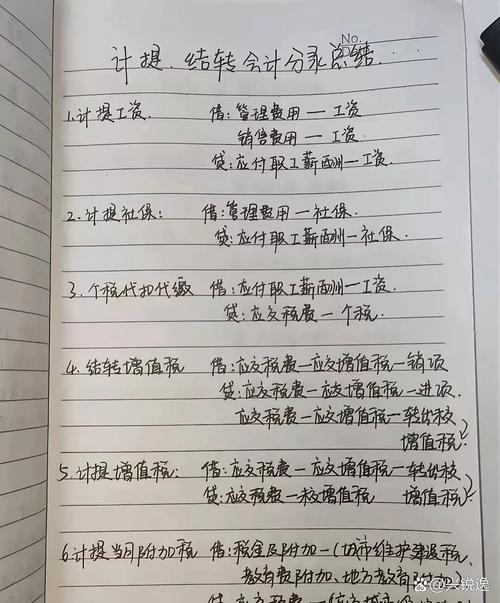 No.
计提、结转会计分录总结.
1.计提工资. 借:管理费用一工资
销售费用一工资
贷:应付职工薪酬一工资.
2.计提社保: 借:管理费用一社保.
贷:应付职工薪酬一社保.
3.个税代扣代缴 借:应付职工薪酬一工资.
贷:应交税费一个税.
4.结转增值税 借:应交税费一应交增值税一销项
贷:应交税费一应交增值税一进项.
应交税费一应交增值税一转出未交
增值税.
5.计提增值税: 借:应交税费一应交增值税一转出未交
贷:应交税费一未交增值税 增值税.
6.计提当月附加税 借:税金及附加一(城市维护建设税、
教育费附加、地方教育附加)
@兴锐逸